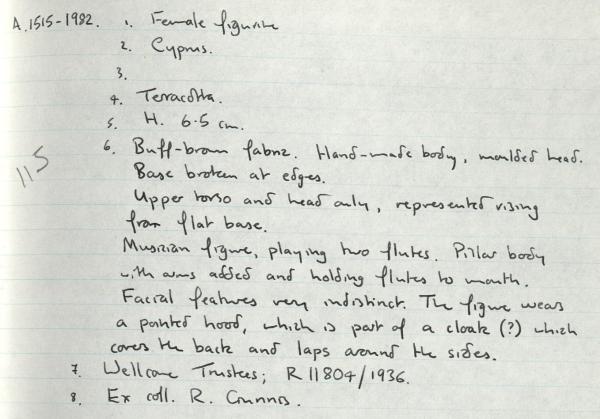 A.1515-1982. 1. Female figurine
2. Cyprus.
3.
4. Terracotta.
5. H. 6.5 cm.
6. Buff-brown fabric. Hand-made body, moulded head.
Base broken at edges.
115
Upper torso and head only, represented rising
from flat base.
Musician figure, playing two flutes. Pillar body
with arms added and holding flutes to mouth.
Facial features very indistinct. The figure wears
a pointed hood, which is part of a cloak (?) which
covers the back and laps around the sides.
7. Wellcome Trustees; R 11804/1936.
8. Ex coll. R.